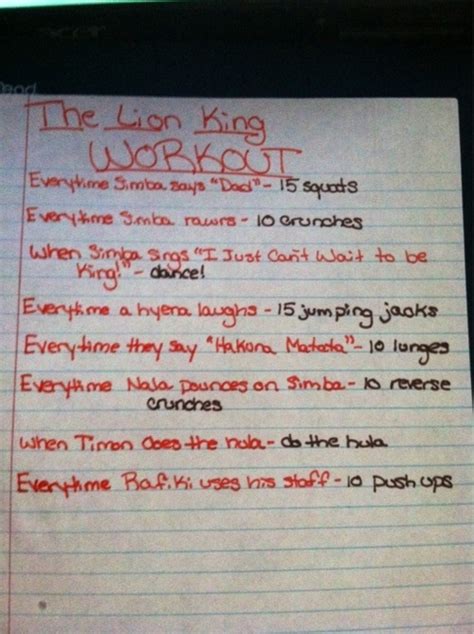 The Lion King
WORKOUT
Everytime Simba says "Dad" - 15 squats
Everytime Simba rawrs - 10 crunches
When Simba sings "I Just Can't Wait to be
King!" - dance!
Everytime a hyena laughs - 15 jumping jacks
Everytime they say "Hakuna Matata" - 10 lunges
Everytime Nala pounces on Simba - 10 reverse
crunches
When Timon does the hula - do the hula
Everytime Rafiki uses his staff - 10 push ups